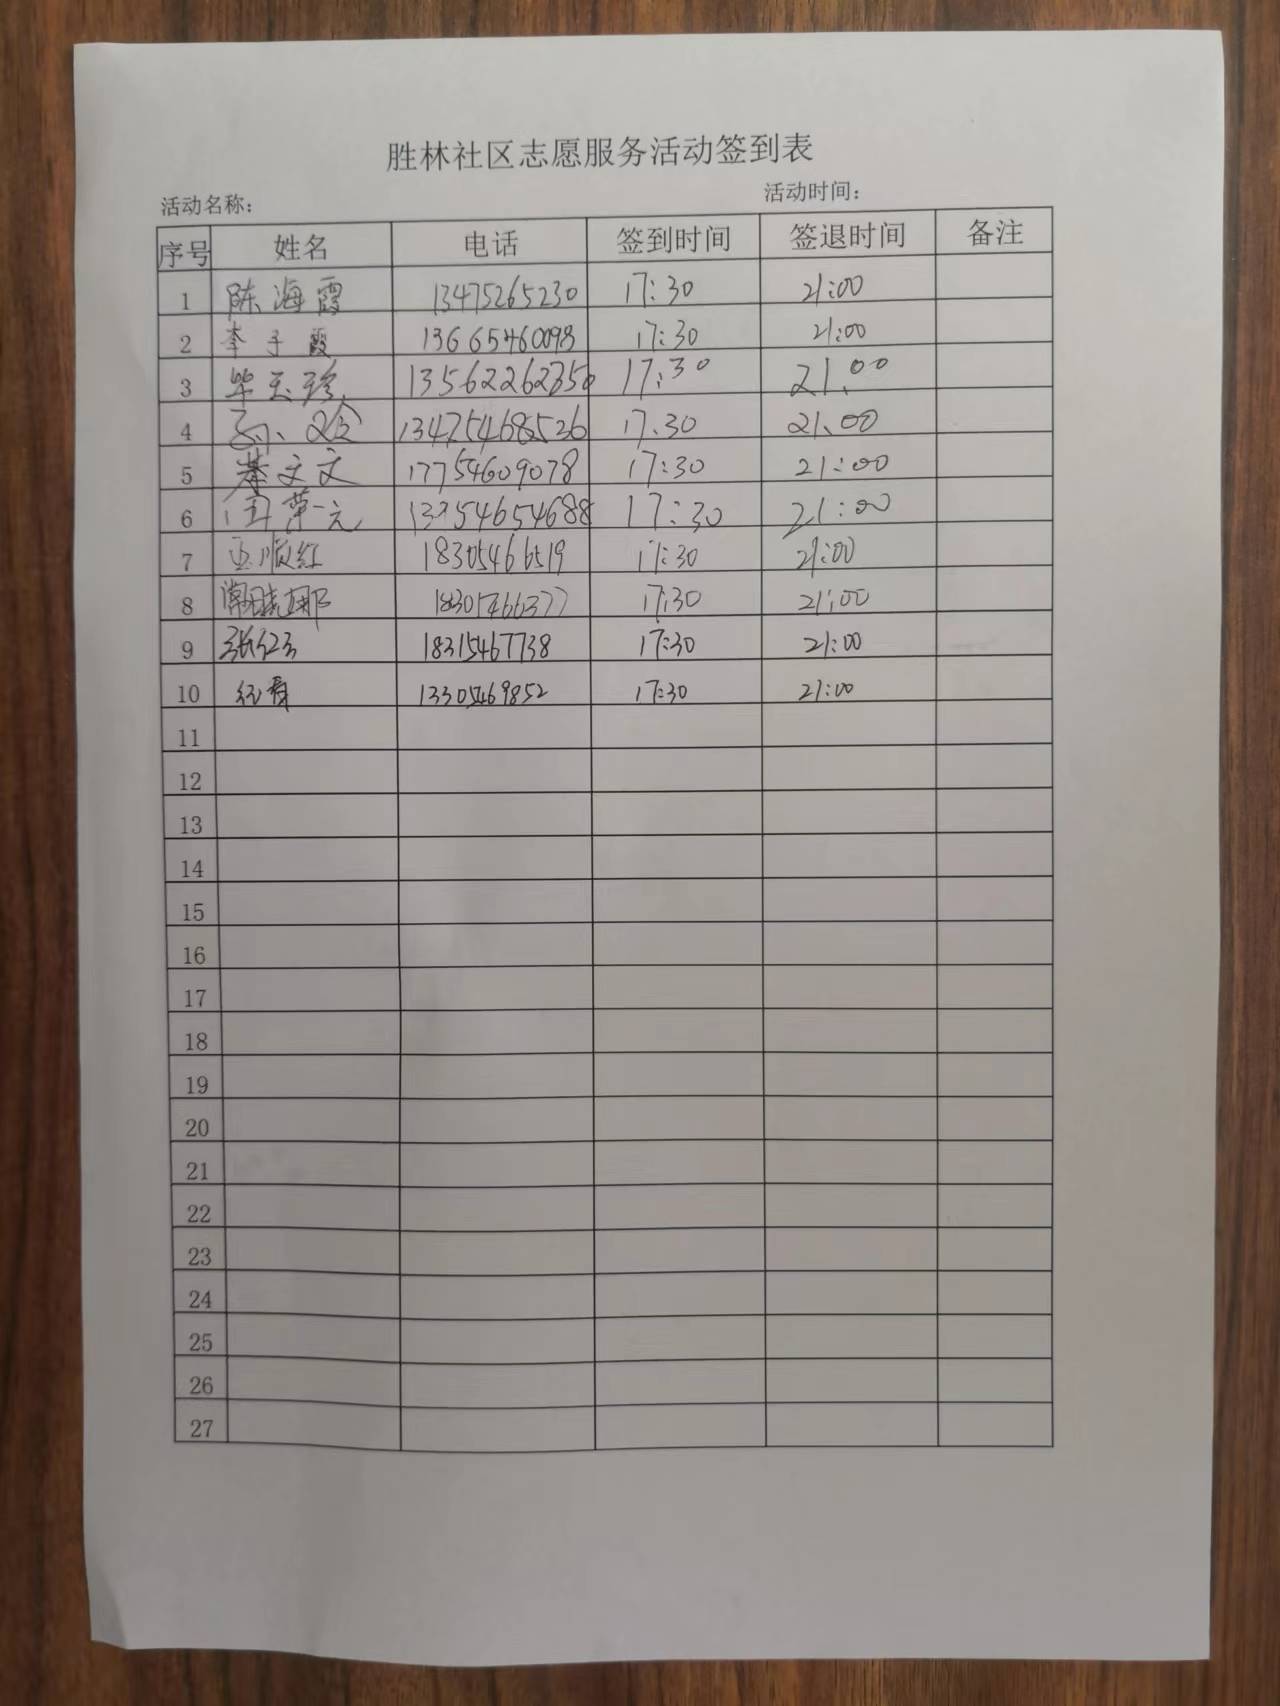 胜林社区志愿服务活动签到表
活动名称： 活动时间：
序号 姓名 电话 签到时间 签退时间 备注
1 陈海霞 13475265230 17:30 21:00
2 李子霞 13665460093 17:30 21:00
3 毕玉珍 17:30 21.00
4 13475468526 17.30 21.00
5 綦文文 17754609078 17:30 21:00
6 17:30 21:00
7 顺红 18305466519 17:30 21:00
8 17:30 21:00
9 张红 18315467738 17:30 21:00
10 13305469852 17:30 21:00
11
12
13
14
15
16
17
18
19
20
21
22
23
24
25
26
27